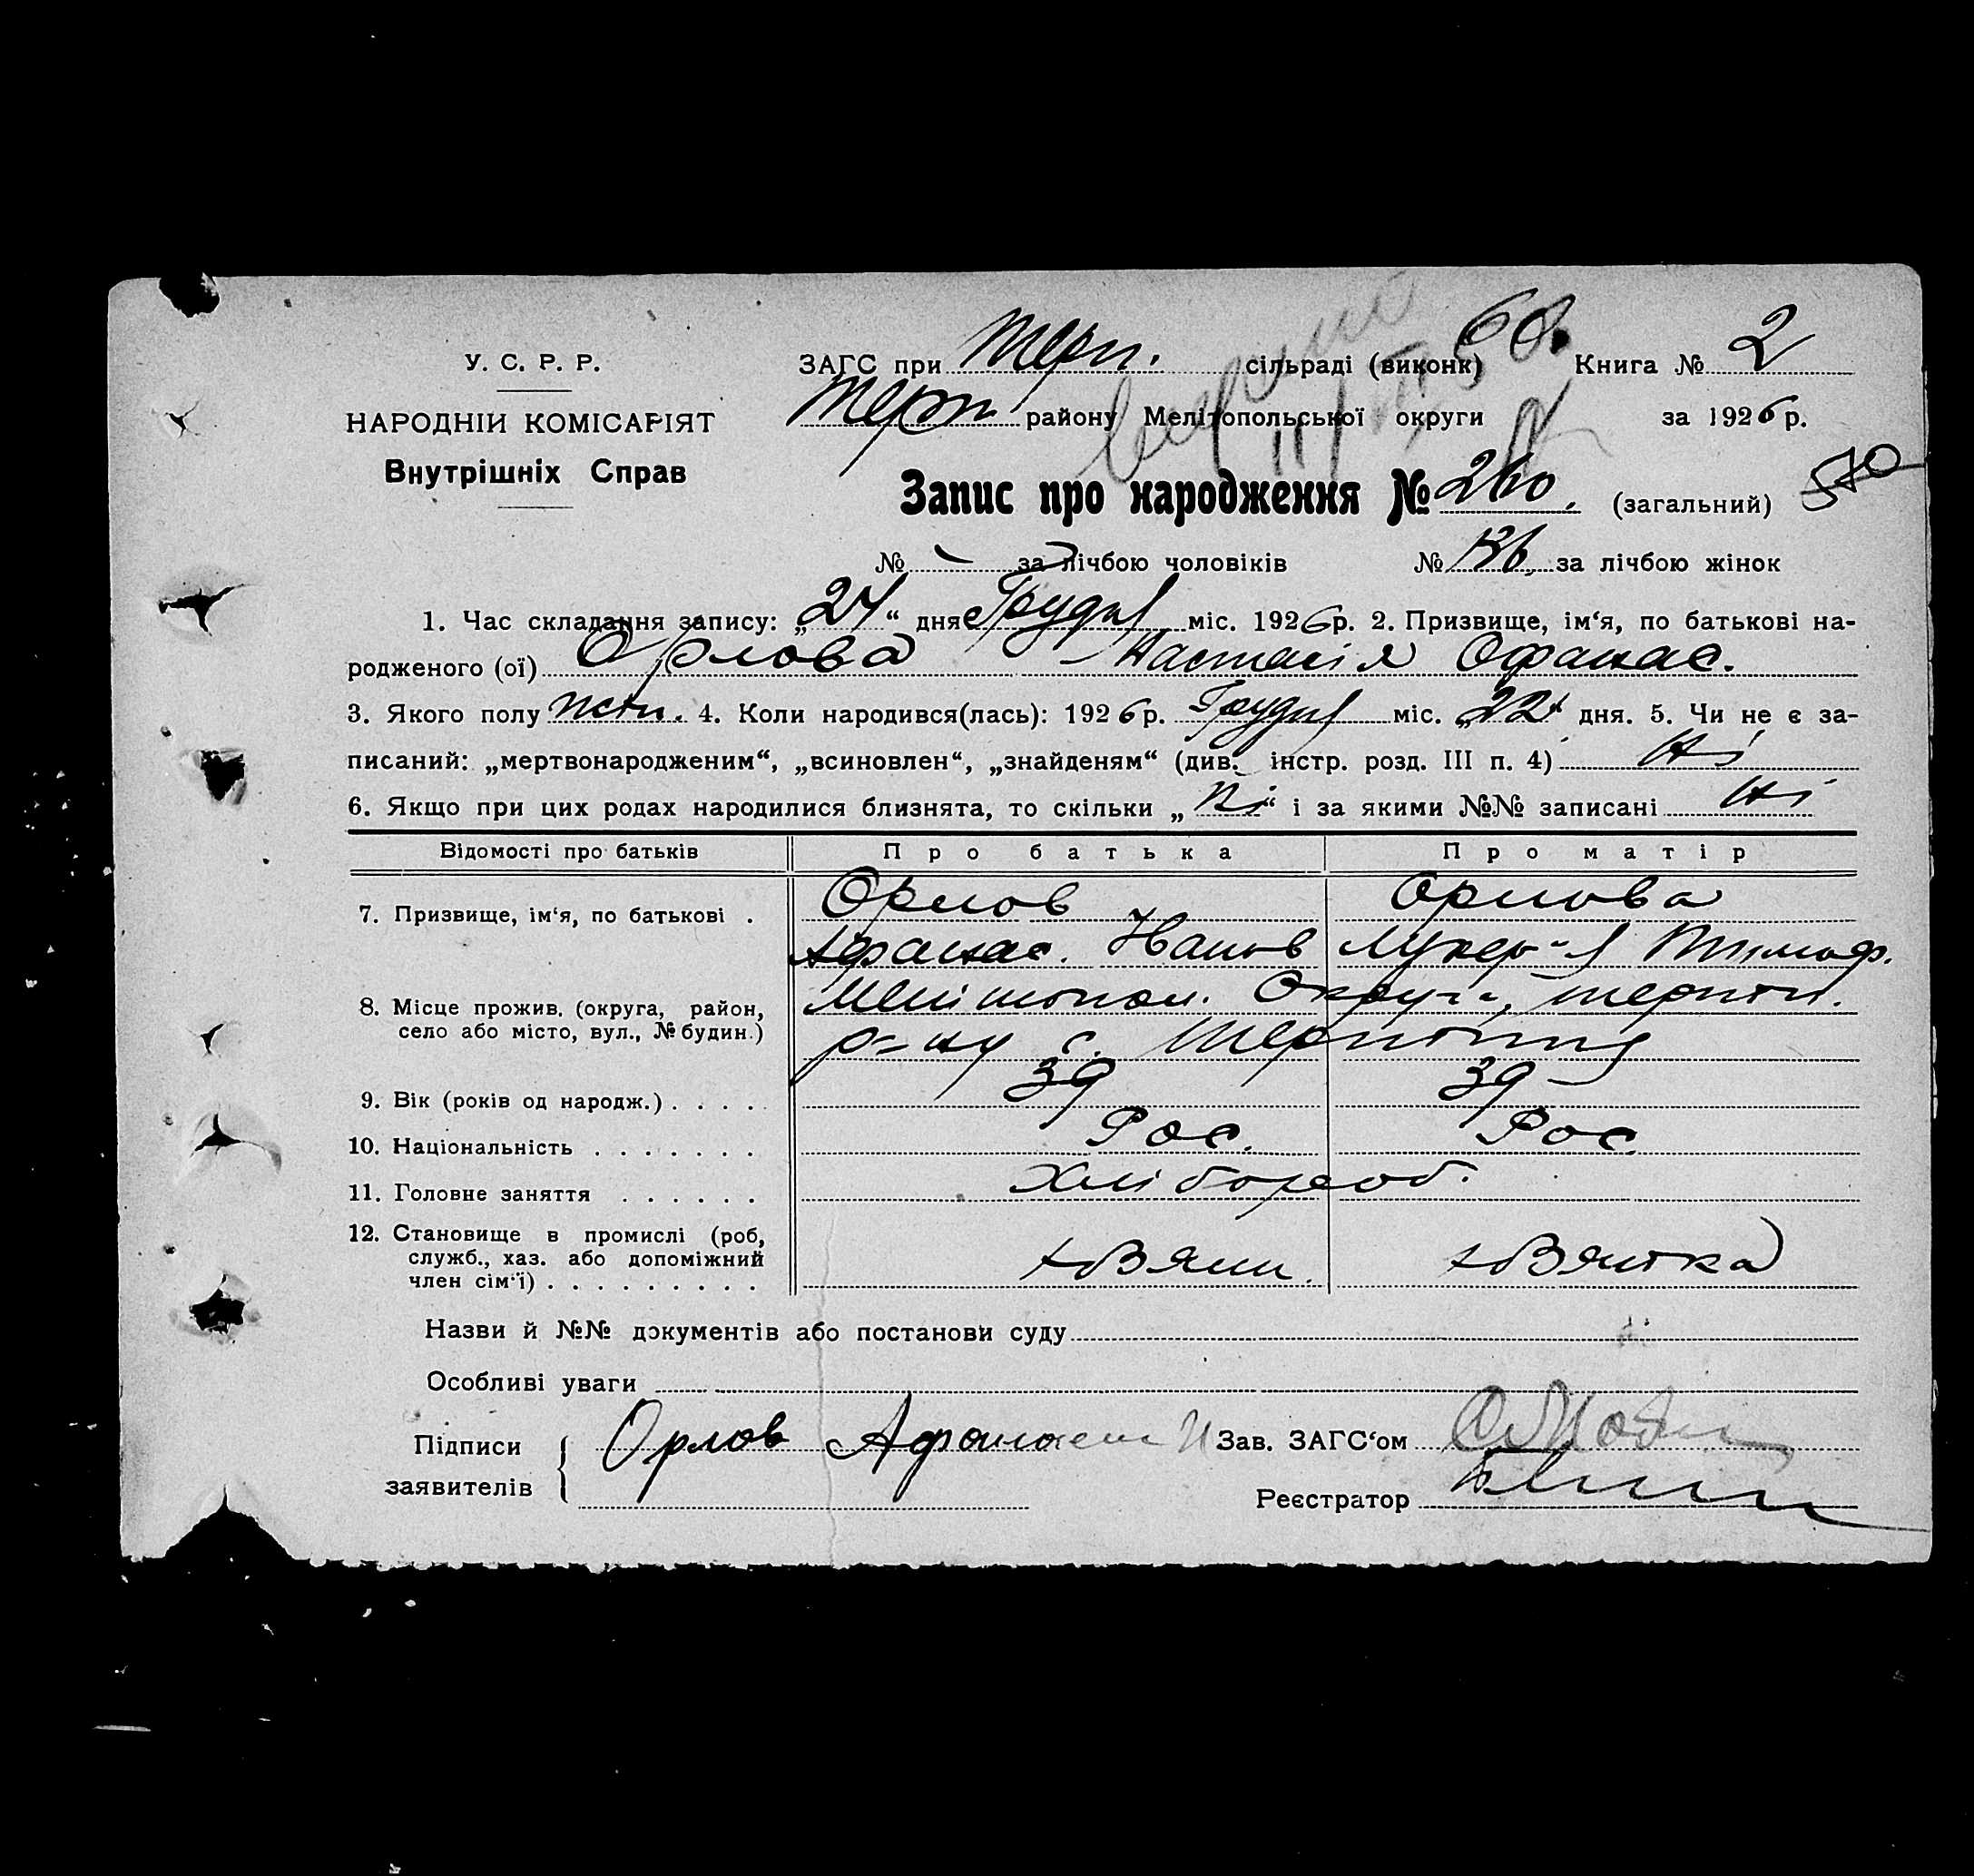 60.
У. С. Р. Р.
ЗАГС при Терп. сільраді (виконк) Книга № 2
НАРОДНІЙ КОМІСАРІЯТ
Терп. району Мелітопольської округи за 1926 р.
Внутрішніх Справ
Запис про народження № 260. (загальний) 570
№ — за лічбою чоловіків № 136 за лічбою жінок
1. Час складання запису: „24“ дня Грудня міс. 1926 р. 2. Призвище, ім‘я, по батькові на-
родженого (ої) Орлова Настасія Офанас.
3. Якого полу жін. 4. Коли народився(лась): 1926 р. Грудня міс. „22“ дня. 5. Чи не є за-
писаний: „мертвонародженим“, „всиновлен“, „знайденям“ (див. інстр. розд. III п. 4) Ні
6. Якщо при цих родах народилися близнята, то скільки „Ні“ і за якими №№ записані Ні
Відомості про батьків Про батька Про матір
7. Призвище, ім‘я, по батькові . Орлов Орлова
Афанас. Іванов Лукер‘я Тимоф.
8. Місце прожив. (округа, район, Мелітопол. Округи, терпін.
село або місто, вул., № будин.) р-ну с. Терпіння
9. Вік (років од народж.) . . . . . 39 39
10. Національність . . . . . . . Рос. Рос
11. Головне заняття . . . . . . Хлібороб.
12. Становище в промислі (роб,
служб., хаз. або допоміжний
член сім‘ї) . . . . . . . . .
Назви й №№ документів або постанови суду
Особливі уваги
Підписи Орлов Афанасеи И Зав. ЗАГС‘ом
заявителів
Реєстратор